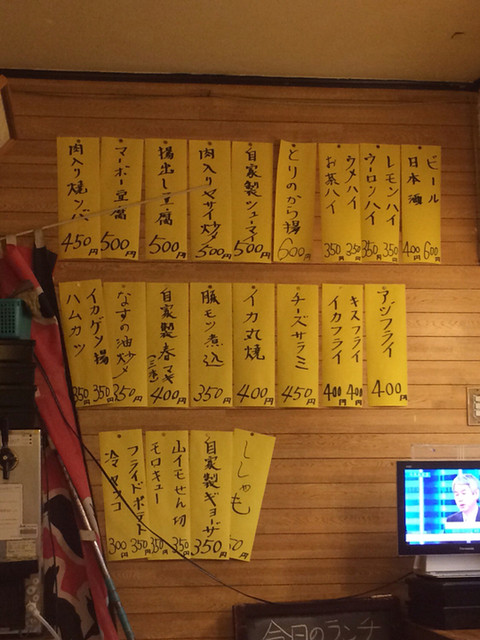 ビール 600円
日本酒 400
レモンハイ 350円
ウーロンハイ 350
ウメハイ 350円
お茶ハイ 350
とりのから揚 600円
自家製シューマイ 500円
肉入りヤサイ炒メ 500円
揚出し豆腐 500円
マーボー豆腐 500円
肉入り焼ソバ 450円
アジフライ 400円
キスフライ 400円
イカフライ 400
チーズサラミ 450円
イカ丸焼 400円
豚モツ煮込 350円
自家製春マキ(三本) 400円
なすの油炒メ 350円
イカゲソ揚 350円
ハムカツ 350
ししゃも 50円
自家製ギョーザ 350円
山イモせん切 350
モロキュー 350円
フライドポテト 350
冷ヤッコ 300円
今日のランチ